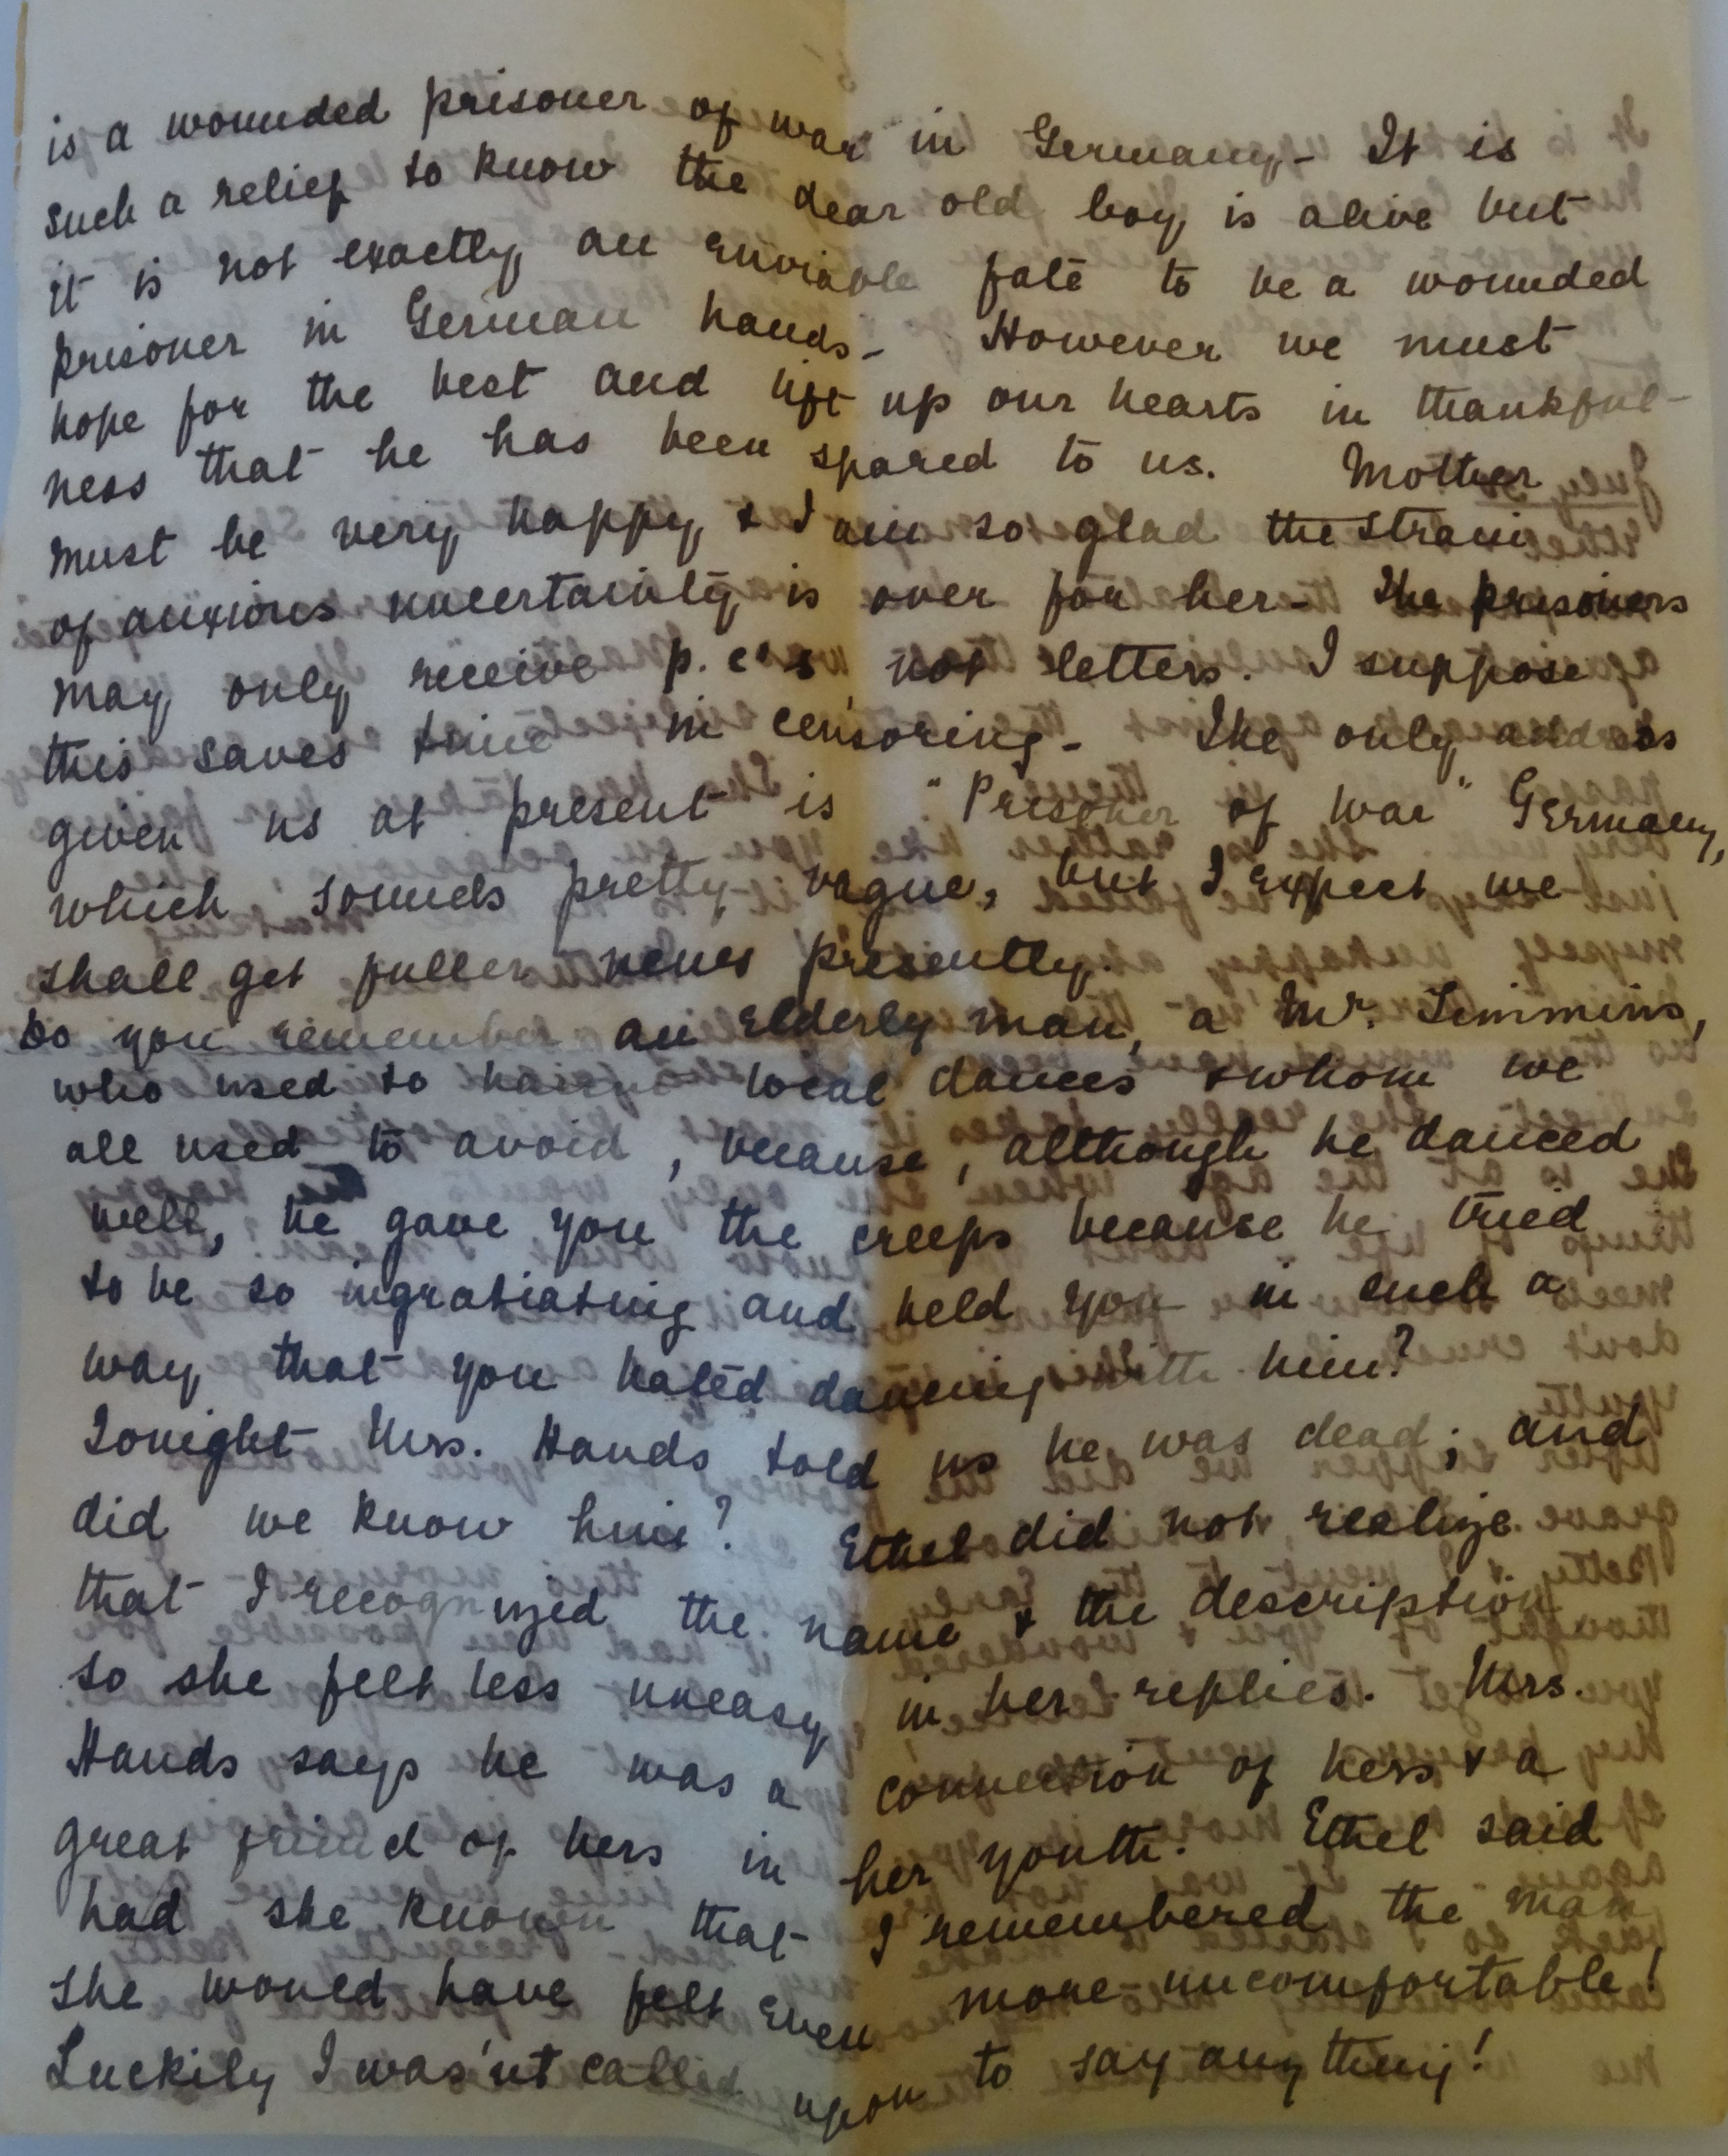 is a wounded prisoner of war in Germany - It is
such a relief to know the dear old boy is alive but
it is not exactly an enviable fate to be a wounded
prisoner in German hands - However we must
hope for the best and lift up our hearts in thankful-
ness that he has been spared to us. Mother
must be very happy & I am so glad the strain
of anxious uncertainty is over for her - The prisoners
may only receive p.c's not letters. I suppose
this saves time in censoring - The only address
given us at present is "Prisoner of War" Germany,
which sounds pretty vague, but I expect we
shall get fuller news presently.
Do you remember an elderly man, a Mr. Timmins,
who used to local dances & whom we
all used to avoid, because, although he danced
well, he gave you the creeps because he tried
to be so ingratiating and held you in such a
way that you hated dancing with him?
Tonight Mrs. Hands told us he was dead; and
did we know him? Ethel did not realize
that I recognized the name & the description
so she felt less uneasy in her replies. Mrs.
Hands says he was a connection of hers & a
great friend of hers in her youth. Ethel said
had she known that I remembered the man
she would have felt even more uncomfortable!
Luckily I was'nt called upon to say anything!